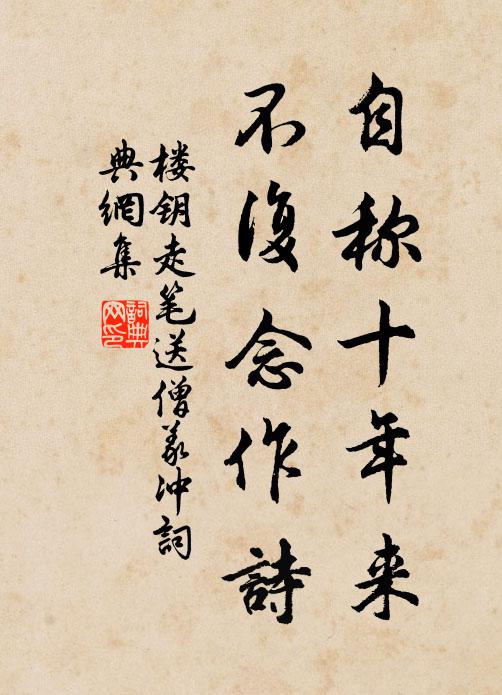 自称十年来
不復念作詩
楼钥走笔送僧義冲詞
典網集
詞典网印